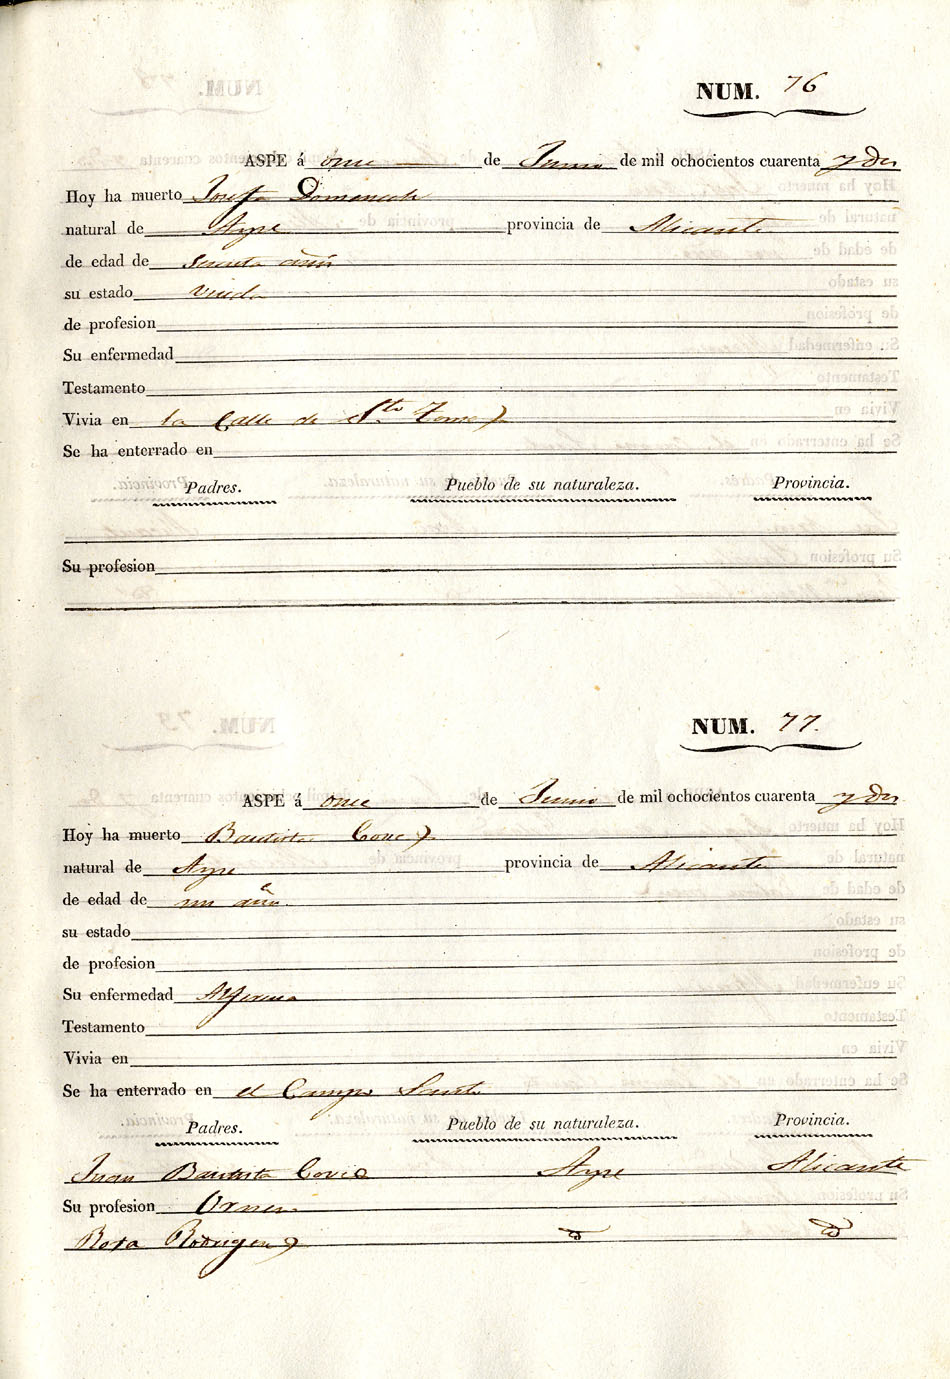 NUM. 76
ASPE á once de Junio de mil ochocientos cuarenta y dos
Hoy ha muerto Josefa Domenech
natural de Aspe provincia de Alicante
de edad de años
su estado viuda
de profesion
Su enfermedad
Testamento
Vivia en la Calle de Sta.
Se ha enterrado en
Padres. Pueblo de su naturaleza. Provincia.
Su profesion
NUM. 77.
ASPE á once de Junio de mil ochocientos cuarenta y dos
Hoy ha muerto Bautista
natural de Aspe provincia de Alicante
de edad de un año
su estado
de profesion
Su enfermedad
Testamento
Vivia en
Se ha enterrado en el Campo Santo
Padres. Pueblo de su naturaleza. Provincia.
Juan Bautista Aspe Alicante
Su profesion
Rosa